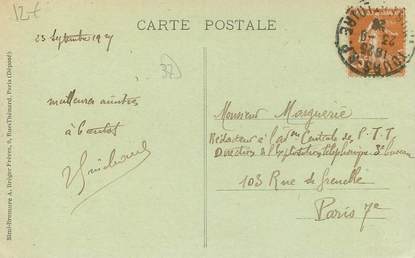 12€
CARTE POSTALE
37
23 Septembre
meilleures amitiés
à bientôt
Monsieur Marguerie
Rédacteur à l'Adm on Centrale des P.T.T.
Direction de l'Exploitation téléphonique 3e bureau
103 Rue de Grenelle
Paris 7e
TOURS-R.P.
18 25
23 - 9
INDRE ET LOIRE
Simi-Bromure A. Breger Frères, 9, Rue Thénard, Paris (Déposé)